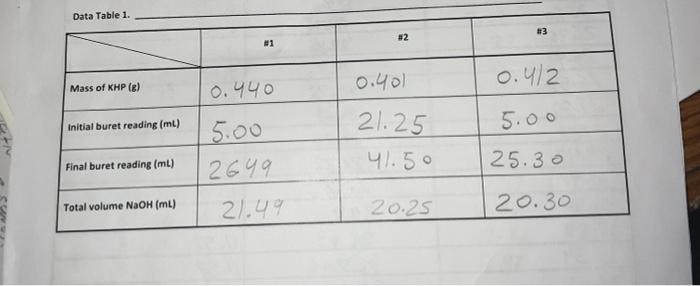 Data Table 1.
#1 #2 #3
Mass of KHP (g) 0.440 0.401 0.412
Initial buret reading (mL) 5.00 21.25 5.00
Final buret reading (mL) 2649 41.50 25.30
Total volume NaOH (mL) 21.49 20.25 20.30